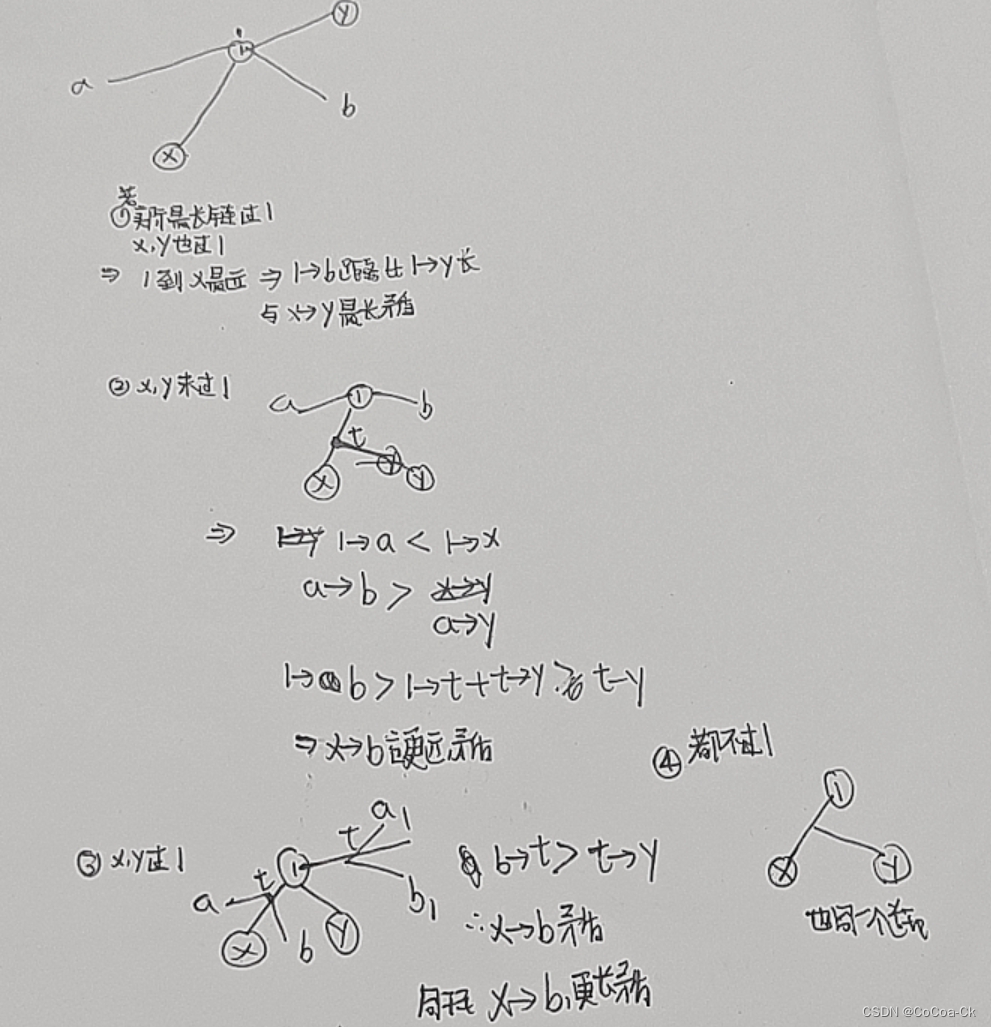 y
1
a
b
x
若
①实际最长链过1
x,y也过1
⇒ 1到x最远 ⇒ 1→b距离比1→y长
与x→y最长矛盾
②x,y未过1
a 1 b
t
x y y
⇒ 1→y 1→a < 1→x
a→b > x→y
a→y
1→b > 1→t+t→y > t→y
⇒ x→b应更远矛盾
④都不过1
1
x y
也同一个
③x,y过1
a1
t
1
t
a
b1
x b y
b→t > t→y
∴x→b矛盾
同理 x→b1更长矛盾
CSDN @CoCoa-Ck